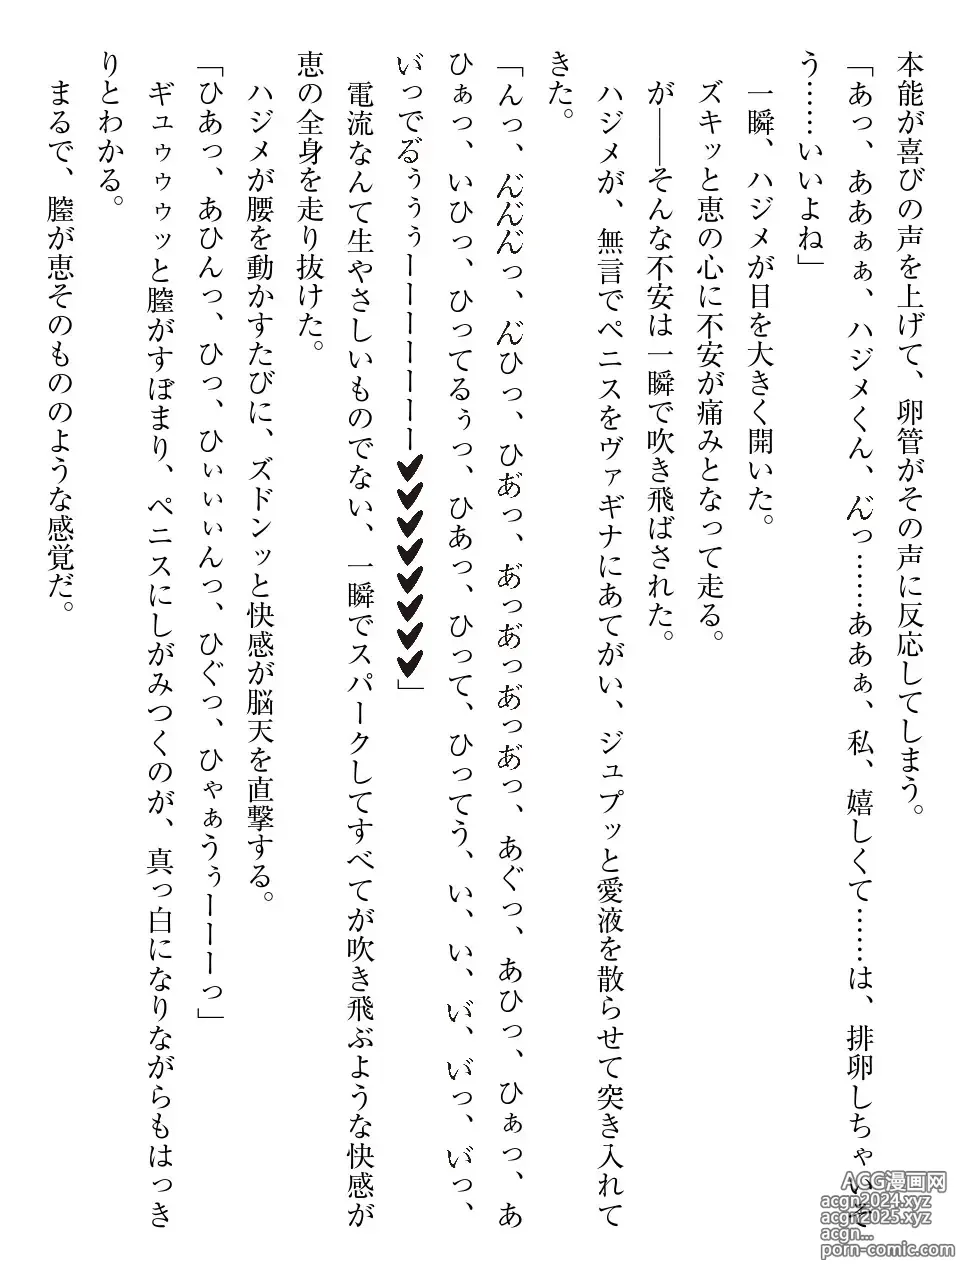 本能が喜びの声を上げて、卵管がその声に反応してしまう。
「あっ、ああぁぁ、ハジメくん、ん゛っ……ああぁ、私、嬉しくて……は、排卵しちゃいそ
う……いいよね」
一瞬、ハジメが目を大きく開いた。
ズキッと恵の心に不安が痛みとなって走る。
が――そんな不安は一瞬で吹き飛ばされた。
ハジメが、無言でペニスをヴァギナにあてがい、ジュプッと愛液を散らせて突き入れて
きた。
「んっ、ん゛ん゛ん゛っ、ん゛ひっ、ひあ゛っ、あ゛っあ゛っあ゛っあ゛っ、あぐっ、あひっ、ひぁっ、あ
ひぁっ、いひっ、ひってるぅっ、ひあっ、ひって、ひってう、い、い、い゛、い゛っ、い゛っ、
い゛っでる゛ぅぅぅーーーーーーー♥♥♥♥♥♥♥♥」
電流なんて生やさしいものでない、一瞬でスパークしてすべてが吹き飛ぶような快感が
恵の全身を走り抜けた。
ハジメが腰を動かすたびに、ズドンッと快感が脳天を直撃する。
「ひあっ、あひんっ、ひっ、ひぃぃぃんっ、ひぐっ、ひゃぁうぅーーーっ」
ギュゥゥゥッと膣がすぼまり、ペニスにしがみつくのが、真っ白になりながらもはっき
りとわかる。
まるで、膣が恵そのもののような感覚だ。
ACG漫画网
acgn2024.xyz
acgn2025.xyz
acgn...
porn-comic.com